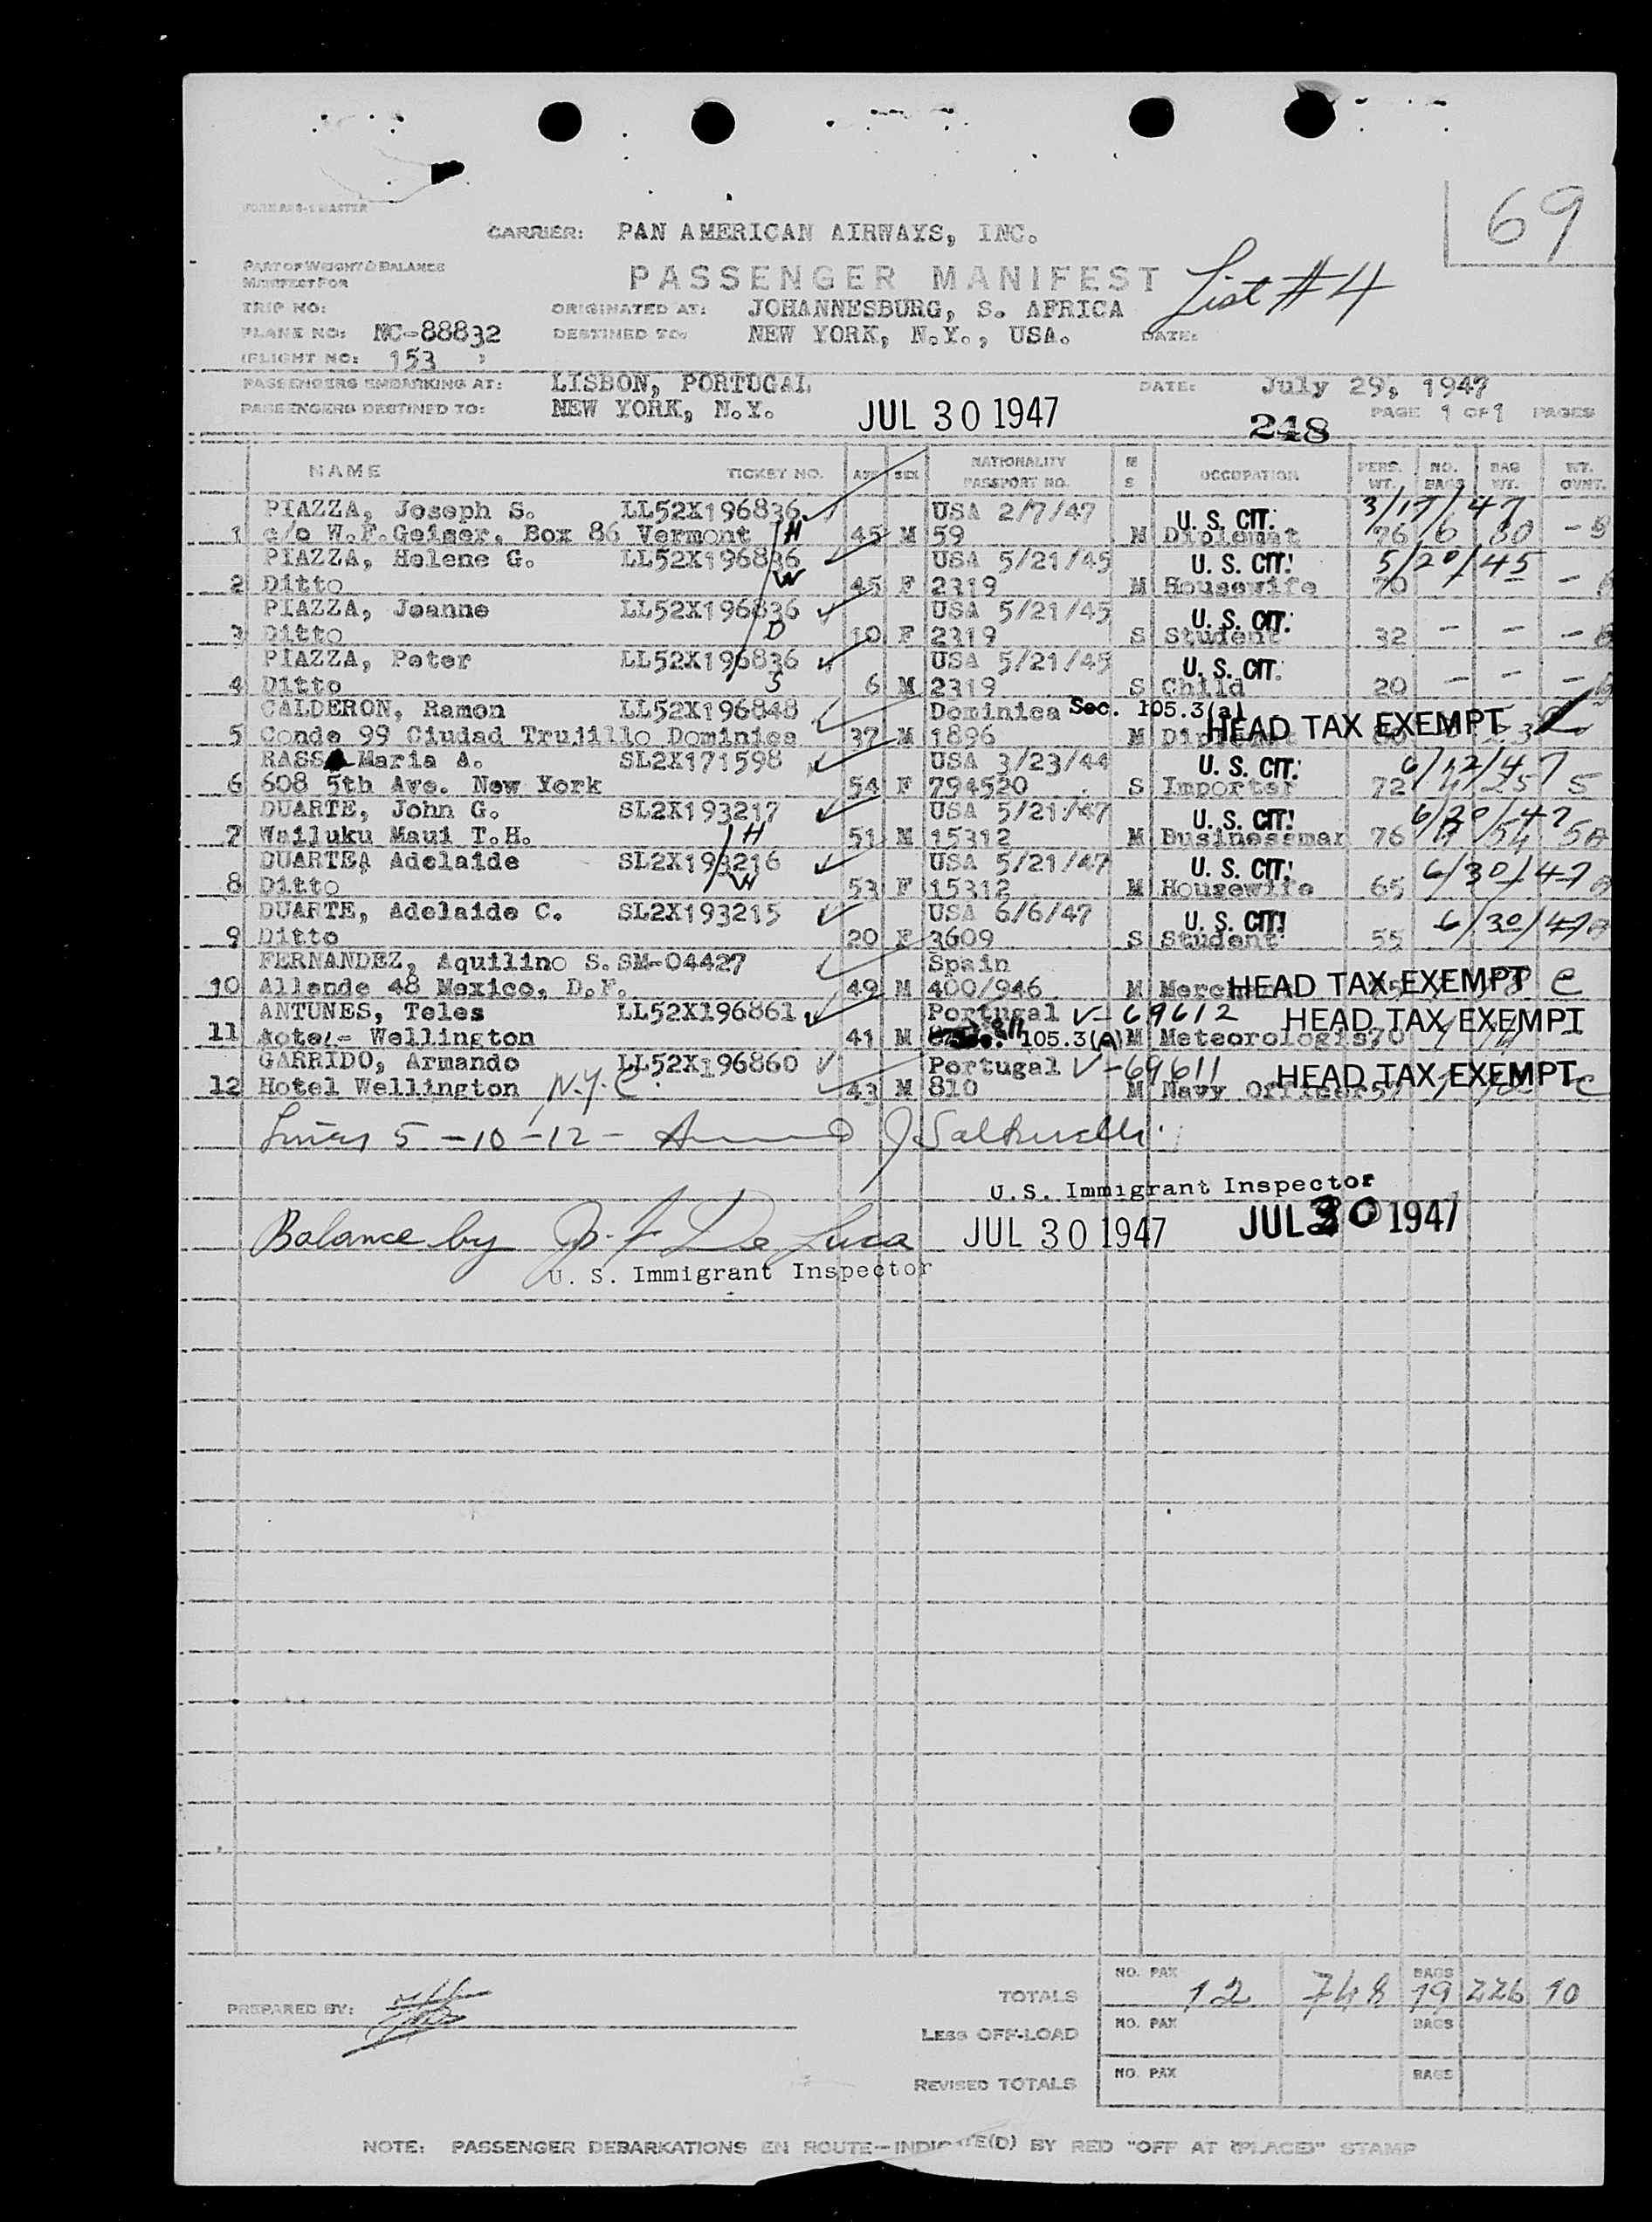 69
CARRIER: PAN AMERICAN AIRWAYS, INC.
PART OF WEIGHT & BALANCE
MANIFEST FOR
PASSENGER MANIFEST
List #4
TRIP NO:
ORIGINATED AT: JOHANNESBURG, S. AFRICA
PLANE NO: NC-88832
DESTINED TO: NEW YORK, N.Y., USA.
DATE:
(FLIGHT NO: 153 )
PASSENGERS EMBARKING AT: LISBON, PORTUGAL
DATE: July 29, 1947
PASSENGERS DESTINED TO: NEW YORK, N.Y.
JUL 30 1947
248
PAGE 1 OF 1 PAGES
NAME TICKET NO. AGE SEX NATIONALITY PASSPORT NO. M S OCCUPATION PERS. WT. NO. BAGS BAG WT. WT. OVNT.
PIAZZA, Joseph S. LL52X196836 USA 2/7/47 U. S. CIT. 3/17/47
1 c/o W.F.Geiger, Box 86 Vermont H 45 M 59 M Diplomat 76 6 80 -
PIAZZA, Helene G. LL52X196836 USA 5/21/45 U. S. CIT. 5/20/45
2 Ditto W 45 F 2319 M Housewife 70 -
PIAZZA, Jeanne LL52X196836 USA 5/21/45 U. S. CIT.
3 Ditto D 10 F 2319 S Student 32 - - -
PIAZZA, Peter LL52X196836 USA 5/21/45 U. S. CIT.
4 Ditto S 6 M 2319 S Child 20 - - -
CALDERON, Ramon LL52X196848 Dominica Sec. 105.3(a) HEAD TAX EXEMPT
5 Conde 99 Ciudad Trujillo Dominica 37 M 1896 M
RASS Maria A. SL2X171598 USA 3/23/44 U. S. CIT. 6/12/47
6 608 5th Ave. New York 54 F 794520 S Importer 72 4 25 5
DUARTE, John G. SL2X193217 USA 5/21/47 U. S. CIT. 6/30/47
7 Wailuku Maui T.H. H 51 M 15312 M Businessman 76 54
DUARTE, Adelaide SL2X193216 USA 5/21/47 U. S. CIT. 6/30/47
8 Ditto W 53 F 15312 M Housewife 65
DUARTE, Adelaide C. SL2X193215 USA 6/6/47 U. S. CIT. 6/30/47
9 Ditto 20 F 3609 S Student 55
FERNANDEZ, Aquilino S. SM-04427 Spain HEAD TAX EXEMPT C
10 Allende 48 Mexico, D.F. 49 M 400/946 M
ANTUNES, Teles LL52X196861 Portugal V-69612 HEAD TAX EXEMPT
11 Hotel- Wellington 41 M 105.3(A) M Meteorologis 70
GARRIDO, Armando LL52X196860 Portugal V-69611 HEAD TAX EXEMPT
12 Hotel Wellington N.Y.C. 43 M 810 M Navy Officer 57 C
Lines 5 -10-12-
U.S. Immigrant Inspector
Balance by De Luca
JUL 30 1947
JUL 30 1947
U. S. Immigrant Inspector
PREPARED BY:
TOTALS NO. PAX 12 748 BAGS 19 226 10
LESS OFF-LOAD NO. PAX BAGS
REVISED TOTALS NO. PAX BAGS
NOTE: PASSENGER DEBARKATIONS EN ROUTE--INDICATE(D) BY RED "OFF AT (PLACE)" STAMP